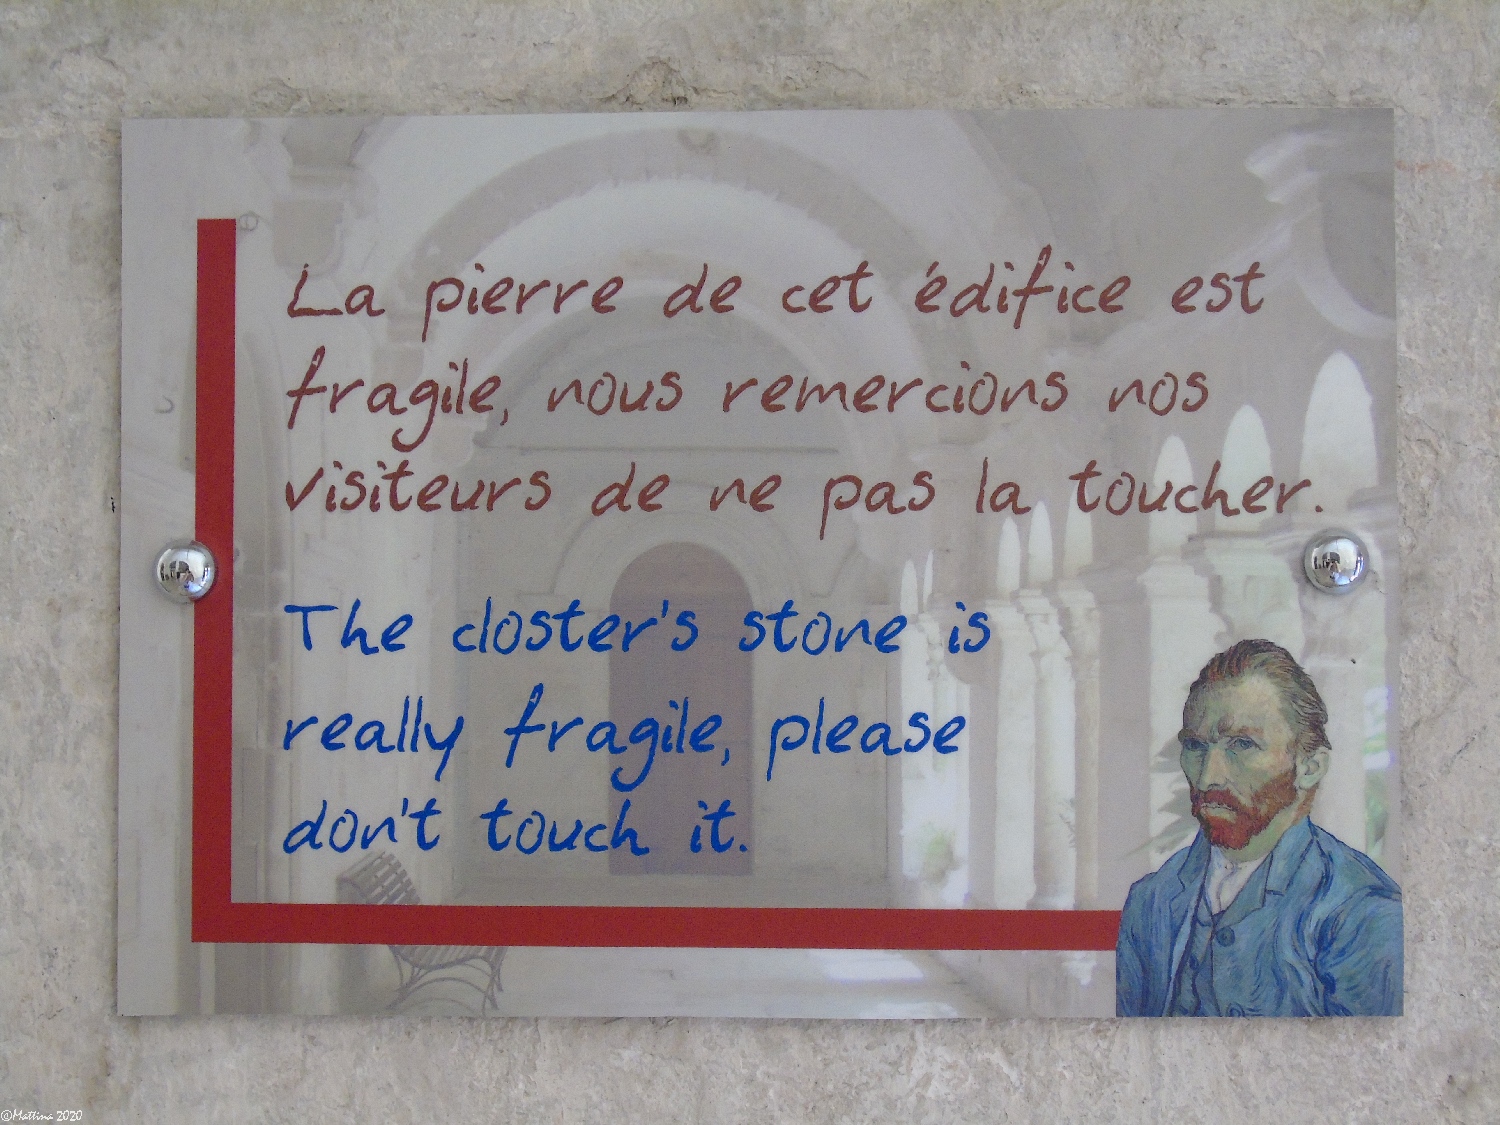 La pierre de cet édifice est
fragile, nous remercions nos
visiteurs de ne pas la toucher.
The closter's stone is
really fragile, please
don't touch it.
©Mattina 2020